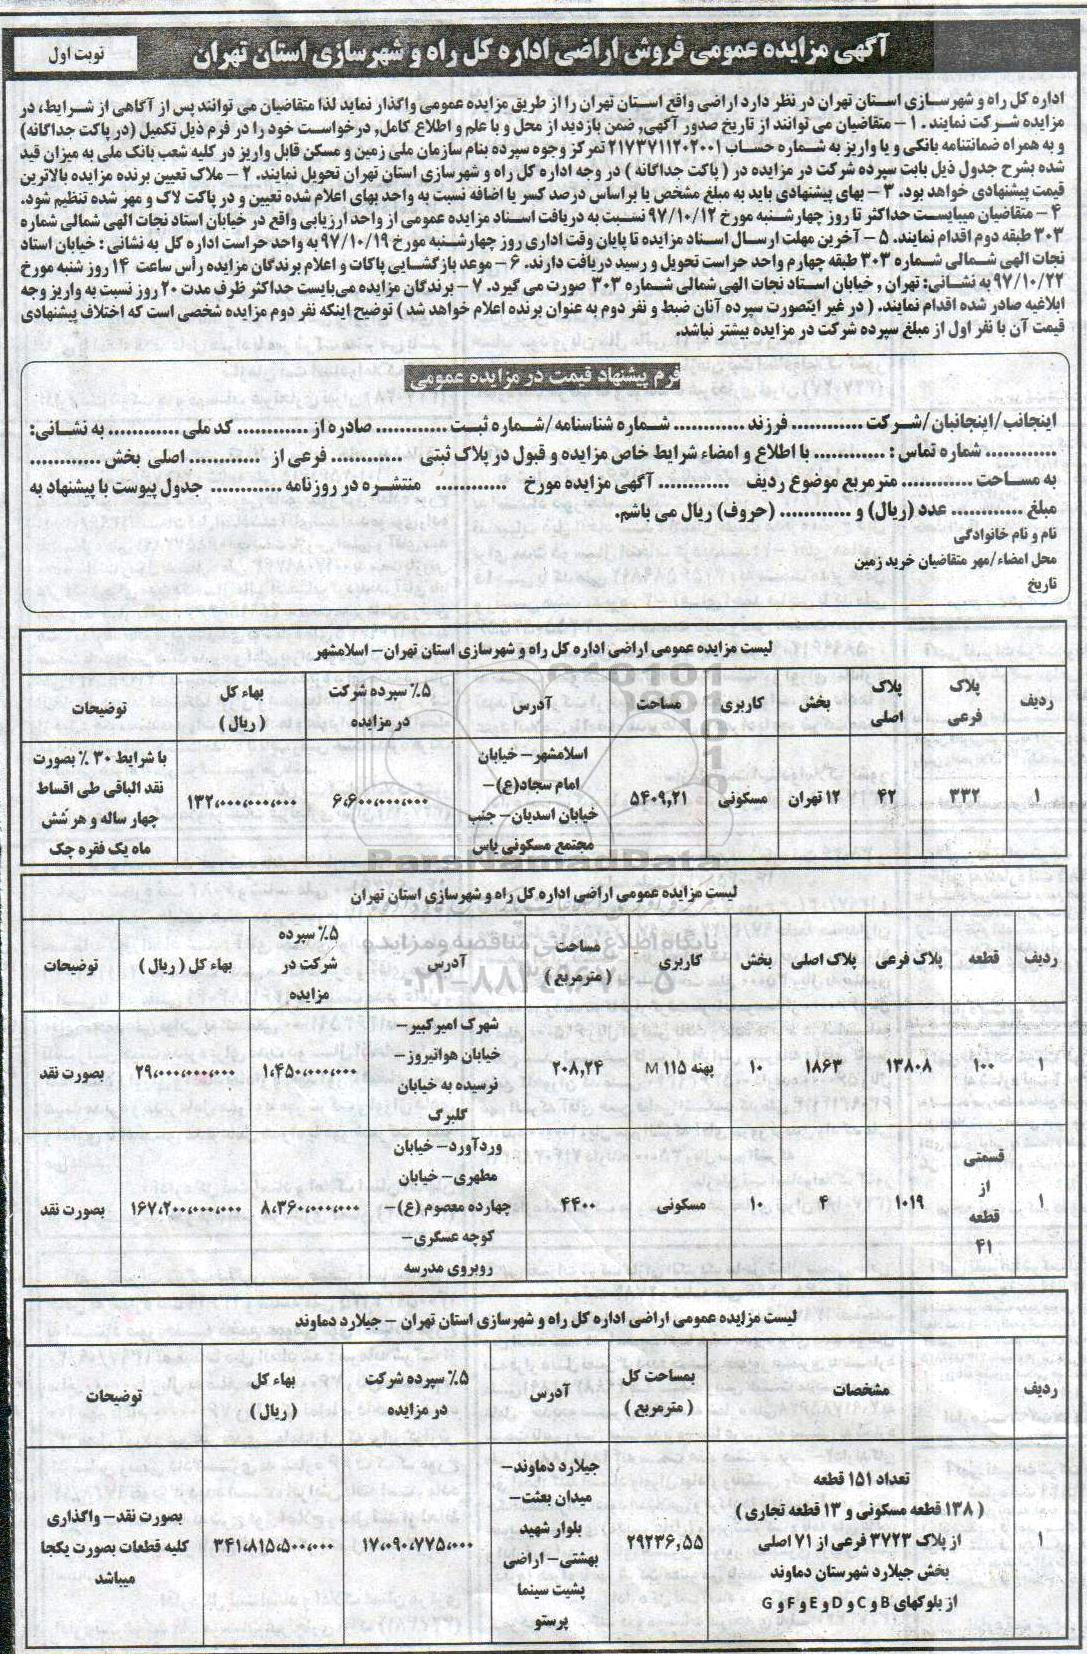 آگهی مزایده عمومی فروش اراضی اداره کل راه و شهرسازی استان تهران
نوبت اول
اداره کل راه و شهرسازی استان تهران در نظر دارد اراضی واقع استان تهران را از طریق مزایده عمومی واگذار نماید لذا متقاضیان می توانند پس از آگاهی از شرایط، در
مزایده شرکت نمایند . ۱ – متقاضیان می توانند از تاریخ صدور آگهی, ضمن بازدید از محل و با علم و اطلاع کامل, درخواست خود را در فرم ذیل تکمیل (در پاکت جداگانه)
و به همراه ضمانتنامه بانکی و یا واریز به شماره حساب ۲۱۷۳۷۱۱۲۰۲۰۰۱ تمرکز وجوه سپرده بنام سازمان ملی زمین و مسکن قابل واریز در کلیه شعب بانک ملی به میزان قید
شده بشرح جدول ذیل بابت سپرده شرکت در مزایده در ( پاکت جداگانه ) در وجه اداره کل راه و شهرسازی استان تهران تحویل نمایند. ۲ – ملاک تعیین برنده مزایده بالاترین
قیمت پیشنهادی خواهد بود. ۳ – بهای پیشنهادی باید به مبلغ مشخص یا براساس درصد کسر یا اضافه نسبت به واحد بهای اعلام شده تعیین و در پاکت لاک و مهر شده تنظیم شود.
۴ – متقاضیان میبایست حداکثر تا روز چهارشنبه مورخ ۹۷/۱۰/۱۲ نسبت به دریافت اسناد مزایده عمومی از واحد ارزیابی واقع در خیابان استاد نجات الهی شمالی شماره
۳۰۳ طبقه دوم اقدام نمایند. ۵ – آخرین مهلت ارسال اسناد مزایده تا پایان وقت اداری روز چهارشنبه مورخ ۹۷/۱۰/۱۹ به واحد حراست اداره کل به نشانی : خیابان استاد
نجات الهی شمالی شماره ۳۰۳ طبقه چهارم واحد حراست تحویل و رسید دریافت دارند. ۶ – موعد بازگشایی پاکات و اعلام برندگان مزایده رأس ساعت ۱۴ روز شنبه مورخ
۹۷/۱۰/۲۲ به نشانی: تهران , خیابان استاد نجات الهی شمالی شماره ۳۰۳ صورت می گیرد. ۷ – برندگان مزایده می‌بایست حداکثر ظرف مدت ۲۰ روز نسبت به واریز وجه
ابلاغیه صادر شده اقدام نمایند. ( در غیر اینصورت سپرده آنان ضبط و نفر دوم به عنوان برنده اعلام خواهد شد ) توضیح اینکه نفر دوم مزایده شخصی است که اختلاف پیشنهادی
قیمت آن با نفر اول از مبلغ سپرده شرکت در مزایده بیشتر نباشد.
فرم پیشنهاد قیمت در مزایده عمومی
اینجانب/اینجانبان/شرکت ............ فرزند ............ شماره شناسنامه/شماره ثبت ............ صادره از ............ کد ملی ............ به نشانی:
............ شماره تماس : ............ با اطلاع و امضاء شرایط خاص مزایده و قبول در پلاک ثبتی ............ فرعی از ............ اصلی بخش ............
به مساحت ............ مترمربع موضوع ردیف ............ آگهی مزایده مورخ ............ منتشره در روزنامه ............ جدول پیوست با پیشنهاد به
مبلغ ............ عدد (ریال) و ............ (حروف) ریال می باشم.
نام و نام خانوادگی
محل امضاء/مهر متقاضیان خرید زمین
تاریخ
لیست مزایده عمومی اراضی اداره کل راه و شهرسازی استان تهران– اسلامشهر
ردیف پلاک فرعی پلاک اصلی بخش کاربری مساحت آدرس ۵٪ سپرده شرکت در مزایده بهاء کل ( ریال) توضیحات
۱ ۳۳۲ ۴۲ ۱۲ تهران مسکونی ۵۴۰۹٫۲۱ اسلامشهر– خیابان امام سجاد(ع)– خیابان اسدیان– جنب مجتمع مسکونی یاس ۶،۶۰۰،۰۰۰،۰۰۰ ۱۳۲،۰۰۰،۰۰۰،۰۰۰ با شرایط ۳۰ ٪ بصورت نقد الباقی طی اقساط چهار ساله و هر شش ماه یک فقره چک
ParsNamadData
لیست مزایده عمومی اراضی اداره کل راه و شهرسازی استان تهران
پایگاه اطلاع رسانی مناقصه و مزایده
ردیف قطعه پلاک فرعی پلاک اصلی بخش کاربری مساحت ( مترمربع) آدرس ۵٪ سپرده شرکت در مزایده بهاء کل ( ریال) توضیحات
۱ ۱۰۰ ۱۳۸۰۸ ۱۸۶۳ ۱۰ پهنه M ۱۱۵ ۲۰۸٫۲۴ شهرک امیرکبیر– خیابان هوانیروز– نرسیده به خیابان گلبرگ ۱،۴۵۰،۰۰۰،۰۰۰ ۲۹،۰۰۰،۰۰۰،۰۰۰ بصورت نقد
۱ قسمتی از قطعه ۴۱ ۱۰۱۹ ۴ ۱۰ مسکونی ۴۴۰۰ وردآورد– خیابان مطهری– خیابان چهارده معصوم (ع)– کوچه عسگری– روبروی مدرسه ۸،۳۶۰،۰۰۰،۰۰۰ ۱۶۷،۲۰۰،۰۰۰،۰۰۰ بصورت نقد
لیست مزایده عمومی اراضی اداره کل راه و شهرسازی استان تهران – جیلارد دماوند
ردیف مشخصات بمساحت کل ( مترمربع) آدرس ۵٪ سپرده شرکت در مزایده بهاء کل ( ریال) توضیحات
۱ تعداد ۱۵۱ قطعه ( ۱۳۸ قطعه مسکونی و ۱۳ قطعه تجاری ) از پلاک ۳۷۲۳ فرعی از ۷۱ اصلی بخش جیلارد شهرستان دماوند از بلوکهای B و C و D و E و F و G ۲۹۲۳۶٫۵۵ جیلارد دماوند– میدان بعثت– بلوار شهید بهشتی– اراضی پشیت سینما پرستو ۱۷،۰۹۰،۷۷۵،۰۰۰ ۳۴۱،۸۱۵،۵۰۰،۰۰۰ بصورت نقد– واگذاری کلیه قطعات بصورت یکجا میباشد